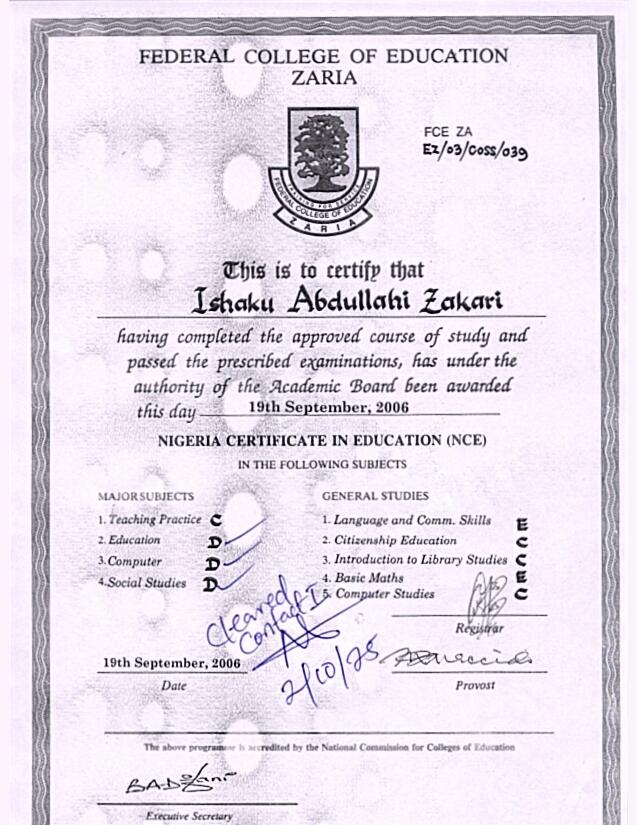 FEDERAL COLLEGE OF EDUCATION
ZARIA
FCE ZA
EZ/03/COSS/039
TRAINING FOR SERVICE
FEDERAL COLLEGE OF EDUCATION
ZARIA
This is to certify that
Ishaku Abdullahi Zakari
having completed the approved course of study and
passed the prescribed examinations, has under the
authority of the Academic Board been awarded
this day 19th September, 2006
NIGERIA CERTIFICATE IN EDUCATION (NCE)
IN THE FOLLOWING SUBJECTS
MAJOR SUBJECTS
1. Teaching Practice C
2. Education D
3. Computer D
4. Social Studies D
GENERAL STUDIES
1. Language and Comm. Skills E
2. Citizenship Education C
3. Introduction to Library Studies C
4. Basic Maths E
5. Computer Studies C
Cleared
Contact I
2/10/25
Registrar
19th September, 2006
Date
Provost
The above programme is accredited by the National Commission for Colleges of Education
Executive Secretary